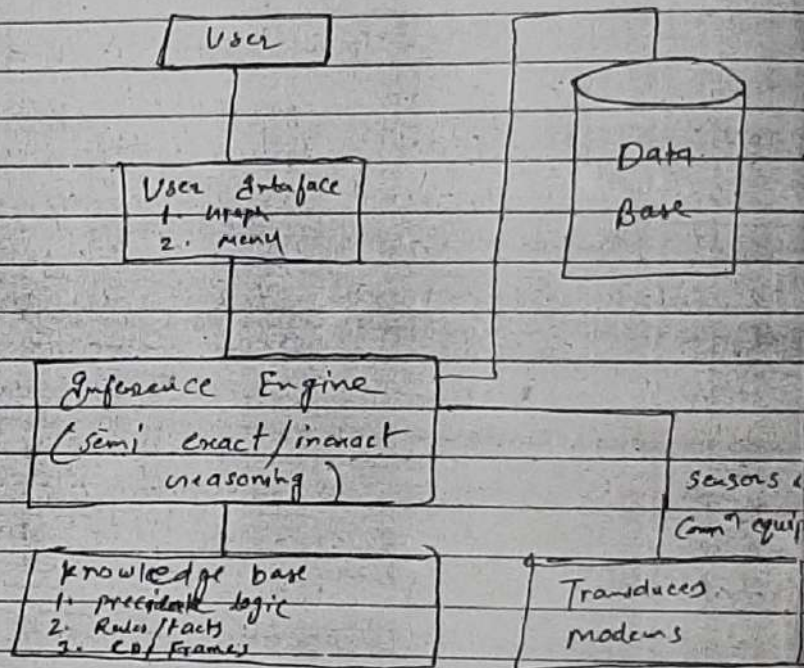 User
Data
Base
User Interface
1. Graph
2. Menu
Inference Engine
(semi exact/inexact
reasoning)
sensors &
Commn equip
knowledge base
1. precidate logic
2. Rules/Facts
3. CD/Frames
Transduces
modems